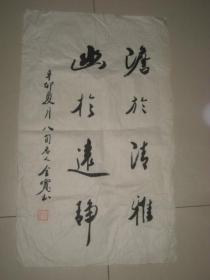 澹於清雅
幽於遠静
辛卯夏月八旬老人